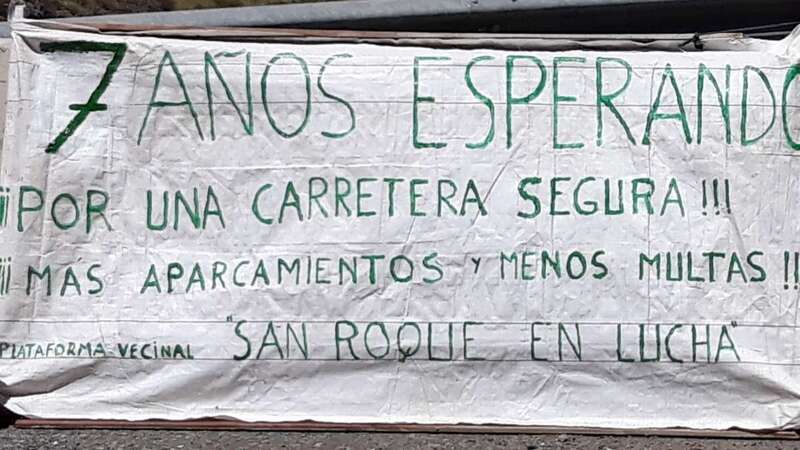 7 AÑOS ESPERANDO
¡¡POR UNA CARRETERA SEGURA!!!
¡¡¡MAS APARCAMIENTOS Y MENOS MULTAS!!
PLATAFORMA VECINAL "SAN ROQUE EN LUCHA"